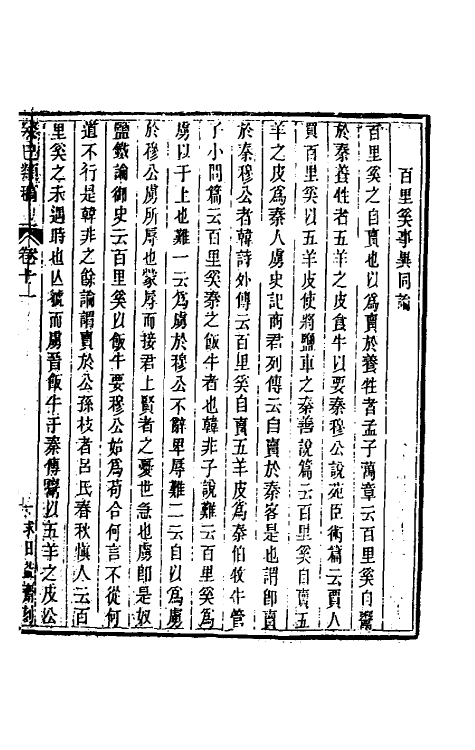 百里奚事異同論
百里奚之自賣也以爲賣於養牲者孟子萬章云百里奚自鬻
於秦養牲者五羊之皮食牛以要秦穆公說苑臣術篇云賈人
買百里奚以五羊皮使將鹽車之秦善說篇云百里奚自賣五
羊之皮爲秦人虜史記商君列傳云自賣於秦客是也謂卽賣
於秦穆公者韓詩外傳云百里奚自賣五羊皮爲秦伯牧牛管
子小問篇云百里奚秦之飯牛者也韓非子說難云百里奚爲
虜以干上也難一云爲虜於穆公不辭卑辱難二云自以爲虜
於穆公虜所辱也蒙辱而接君上賢者之憂世急也虜卽是奴
鹽鐵論御史云百里奚以飯牛要穆公始爲苟合何言不從何
道不行是韓非之餘論謂賣於公孫枝者呂氏春秋慎人云百
里奚之未遇時也亾虢而虜晉飯牛于秦傳鬻以五羊之皮公
癸巳類稿
卷十一
求日益齋刻